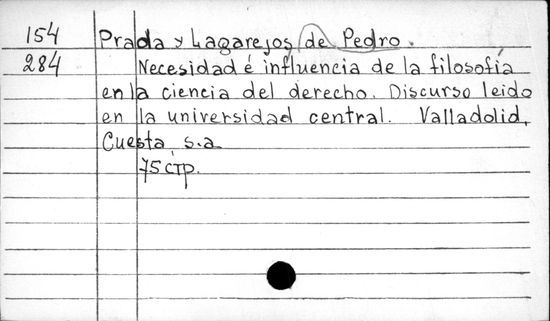 154 Prada y Lagarejos, de Pedro.
284 Necesidad é influencia de la filosofía
en la ciencia del derecho. Discurso leido
en la universidad central. Valladolid,
Cuesta, s.a.
75 ctp.